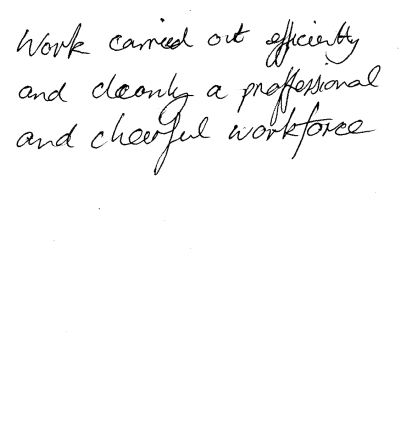 Work carried out efficiently
and cleanly a proffessional
and cheerful workforce